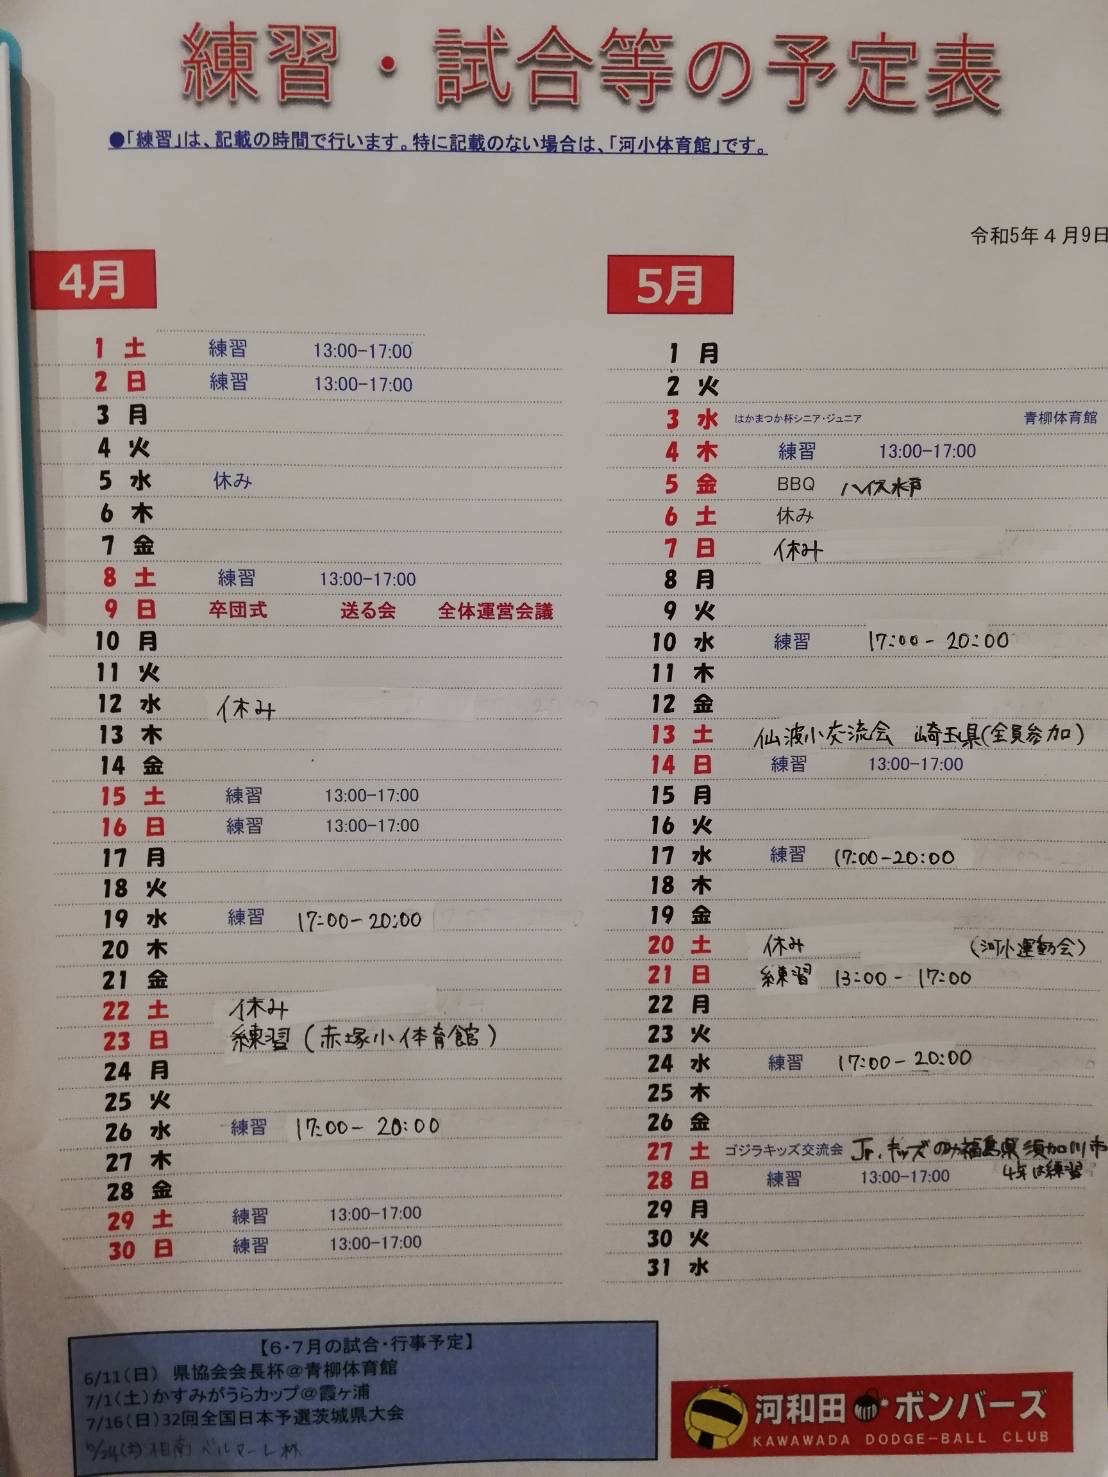 練習・試合等の予定表
●「練習」は、記載の時間で行います。特に記載のない場合は、「河小体育館」です。
令和5年４月9日
4月
1 土 練習 13:00-17:00
2 日 練習 13:00-17:00
3 月
4 火
5 水 休み
6 木
7 金
8 土 練習 13:00-17:00
9 日 卒団式 送る会 全体運営会議
10 月
11 火
12 水 休み
13 木
14 金
15 土 練習 13:00-17:00
16 日 練習 13:00-17:00
17 月
18 火
19 水 練習 17:00-20:00
20 木
21 金
22 土 休み
23 日 練習(赤塚小体育館)
24 月
25 火
26 水 練習 17:00-20:00
27 木
28 金
29 土 練習 13:00-17:00
30 日 練習 13:00-17:00
5月
1 月
2 火
3 水 はかまつか杯シニア・ジュニア 青柳体育館
4 木 練習 13:00-17:00
5 金 BBQ ハイス水戸
6 土 休み
7 日 休み
8 月
9 火
10 水 練習 17:00-20:00
11 木
12 金
13 土 仙波小交流会 埼玉県(全員参加)
14 日 練習 13:00-17:00
15 月
16 火
17 水 練習 17:00-20:00
18 木
19 金
20 土 休み (河小運動会)
21 日 練習 13:00-17:00
22 月
23 火
24 水 練習 17:00-20:00
25 木
26 金
27 土 ゴジラキッズ交流会 Jr.キッズのみ福島県須加川市
4年は練習
28 日 練習 13:00-17:00
29 月
30 火
31 水
【6・7月の試合・行事予定】
6/11(日) 県協会会長杯＠青柳体育館
7/1(土)かすみがうらカップ＠霞ヶ浦
7/16(日)32回全国日本予選茨城県大会
湘南ベルマーレ杯
河和田ボンバーズ
KAWAWADA DODGE-BALL CLUB